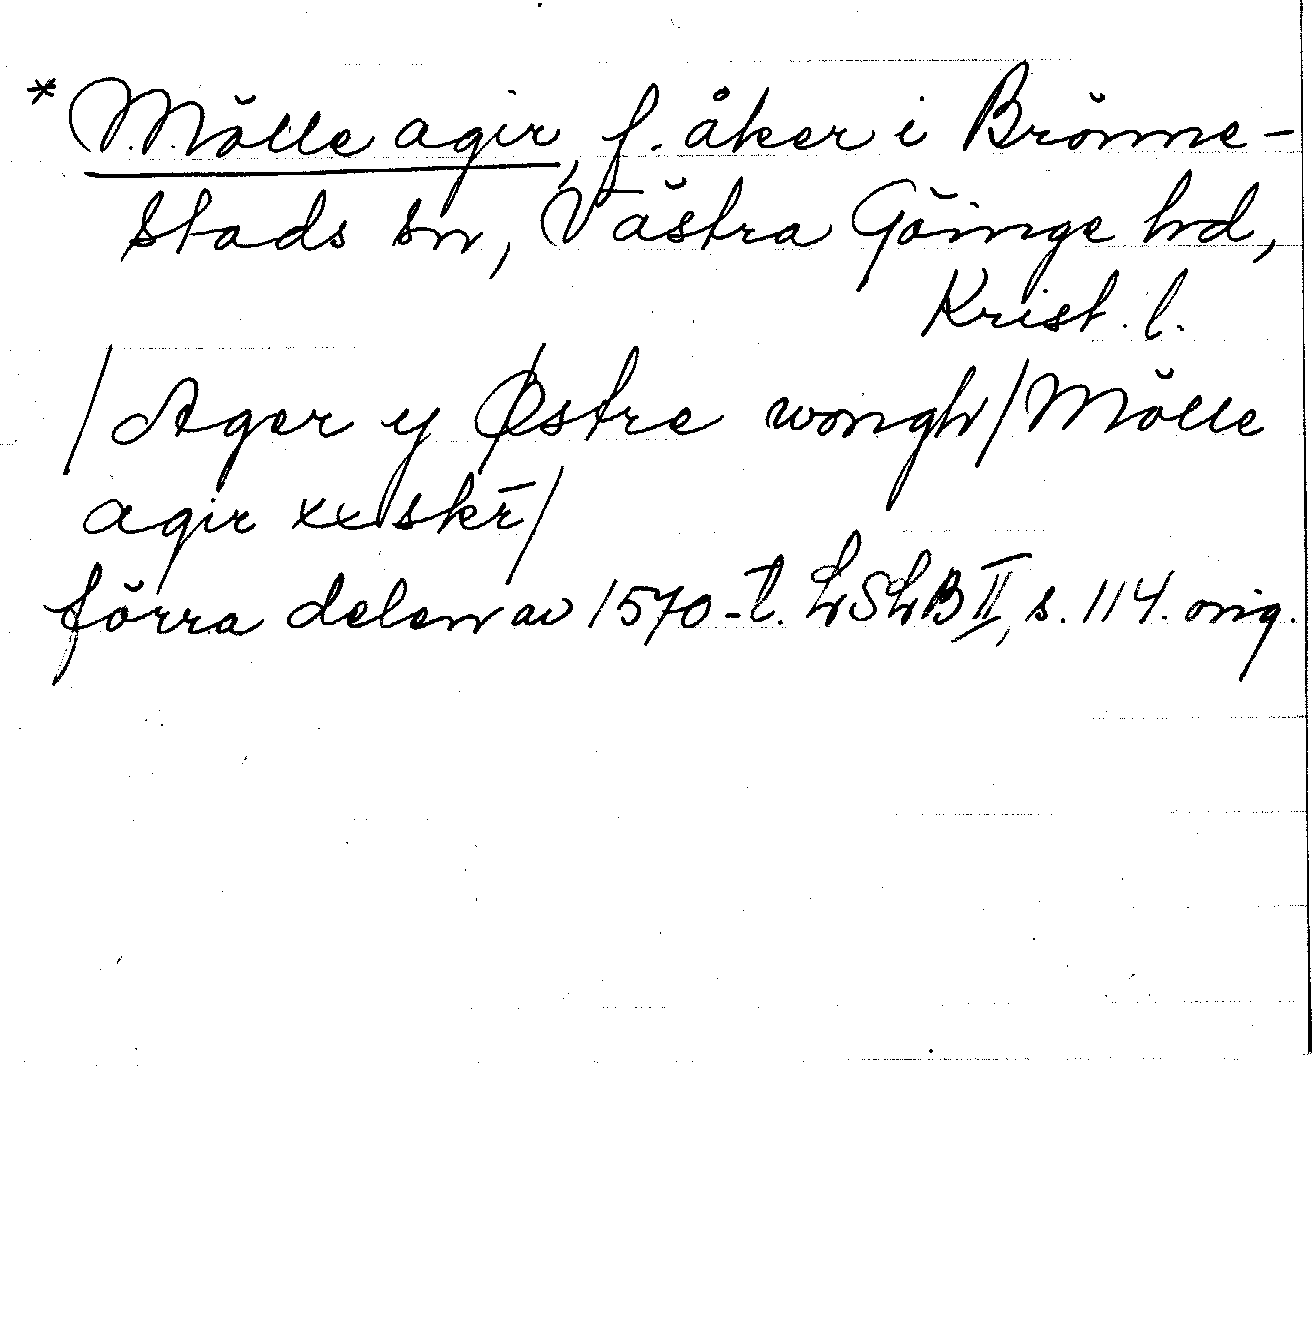 * Mölle agir, f. åker i Brönne-
stads sn, Västra Göinge hd,
Krist. l.
/Ager y Østre wongh/Mölle
agir xx skr̄/
förra delen av 1570-t. LSLB II, s. 114. orig.